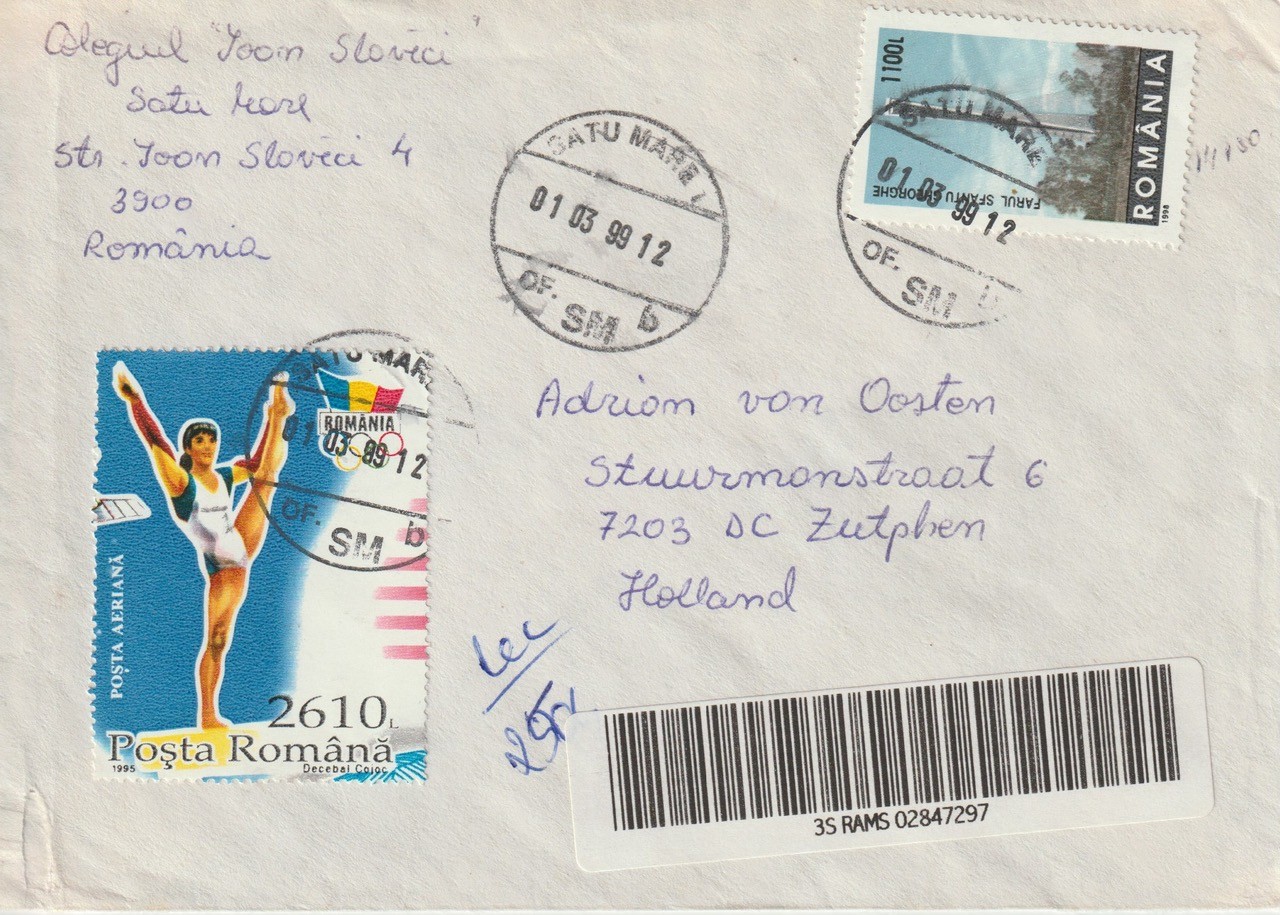 Colegiul "Ioan Slavici"
Satu Mare
Str. Ioan Slavici 4
3900
România
1100L
ROMÂNIA
FARUL SFÂNTU GHEORGHE
1998
SATU MARE
01 03 99 12
OF.
SM b
SATU MARE 1
01 03 99 12
OF.
SM b
SATU MARE
01 03 99 12
OF.
SM b
ROMÂNIA
POȘTA AERIANĂ
2610L
Poșta Română
1995
Decebal Cojoc
Adrian van Oosten
Stuurmanstraat 6
7203 DC Zutphen
Holland
3S RAMS 02847297